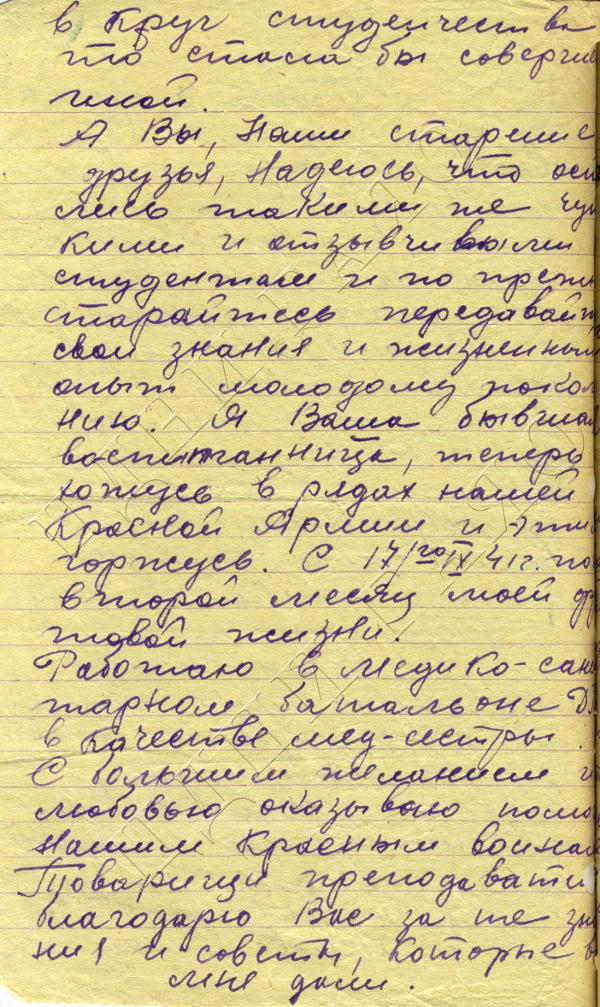 в круг студенчества
что стала бы соверше
нной.
А Вы, Наши старшие
друзья, Надеюсь, что оста
лись такими же чут
кими и отзывчивыми
студентам и по преж
старайтесь передавайт
свои знания и жизненный
опыт молодому покол
нию. Я Ваша бывшая
воспитанница, теперь
хожусь в рядах нашей
Красной Армии и этим
горжусь. С 17/го IX 41 г. по
второй месяц моей фр
товой жизни.
Работаю в медико-сани
тарном батальоне
в качестве мед-сестры.
С большим желанием и
любовью оказываю помо
Нашим Красным воинам
Товарищи преподавати
благодарю Вас за те зна
ния и советы, которые в
мне дали.